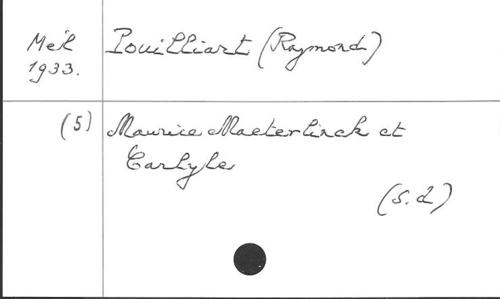 Mél Pouilliart (Raymond)
1933.
(5) Maurice Maeterlinck et
Carlyle
(s.d)